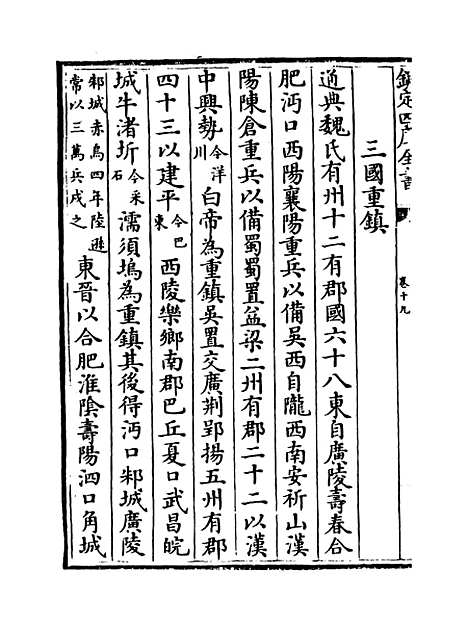 欽定四庫全書
卷十九
三國重鎮
通典魏氏有州十二有郡國六十八東自廣陵壽春合
肥沔口西陽襄陽重兵以備吳西自隴西南安祈山漢
陽陳倉重兵以備蜀蜀置益梁二州有郡二十二以漢
中興勢今洋川白帝為重鎮吳置交廣荆郢揚五州有郡
四十三以建平今巴東西陵樂鄉南郡巴丘夏口武昌皖
城牛渚圻今采石濡須塢為重鎮其後得沔口邾城廣陵
邾城赤烏四年陸遜常以三萬兵戍之東晉以合肥淮陰壽陽泗口角城